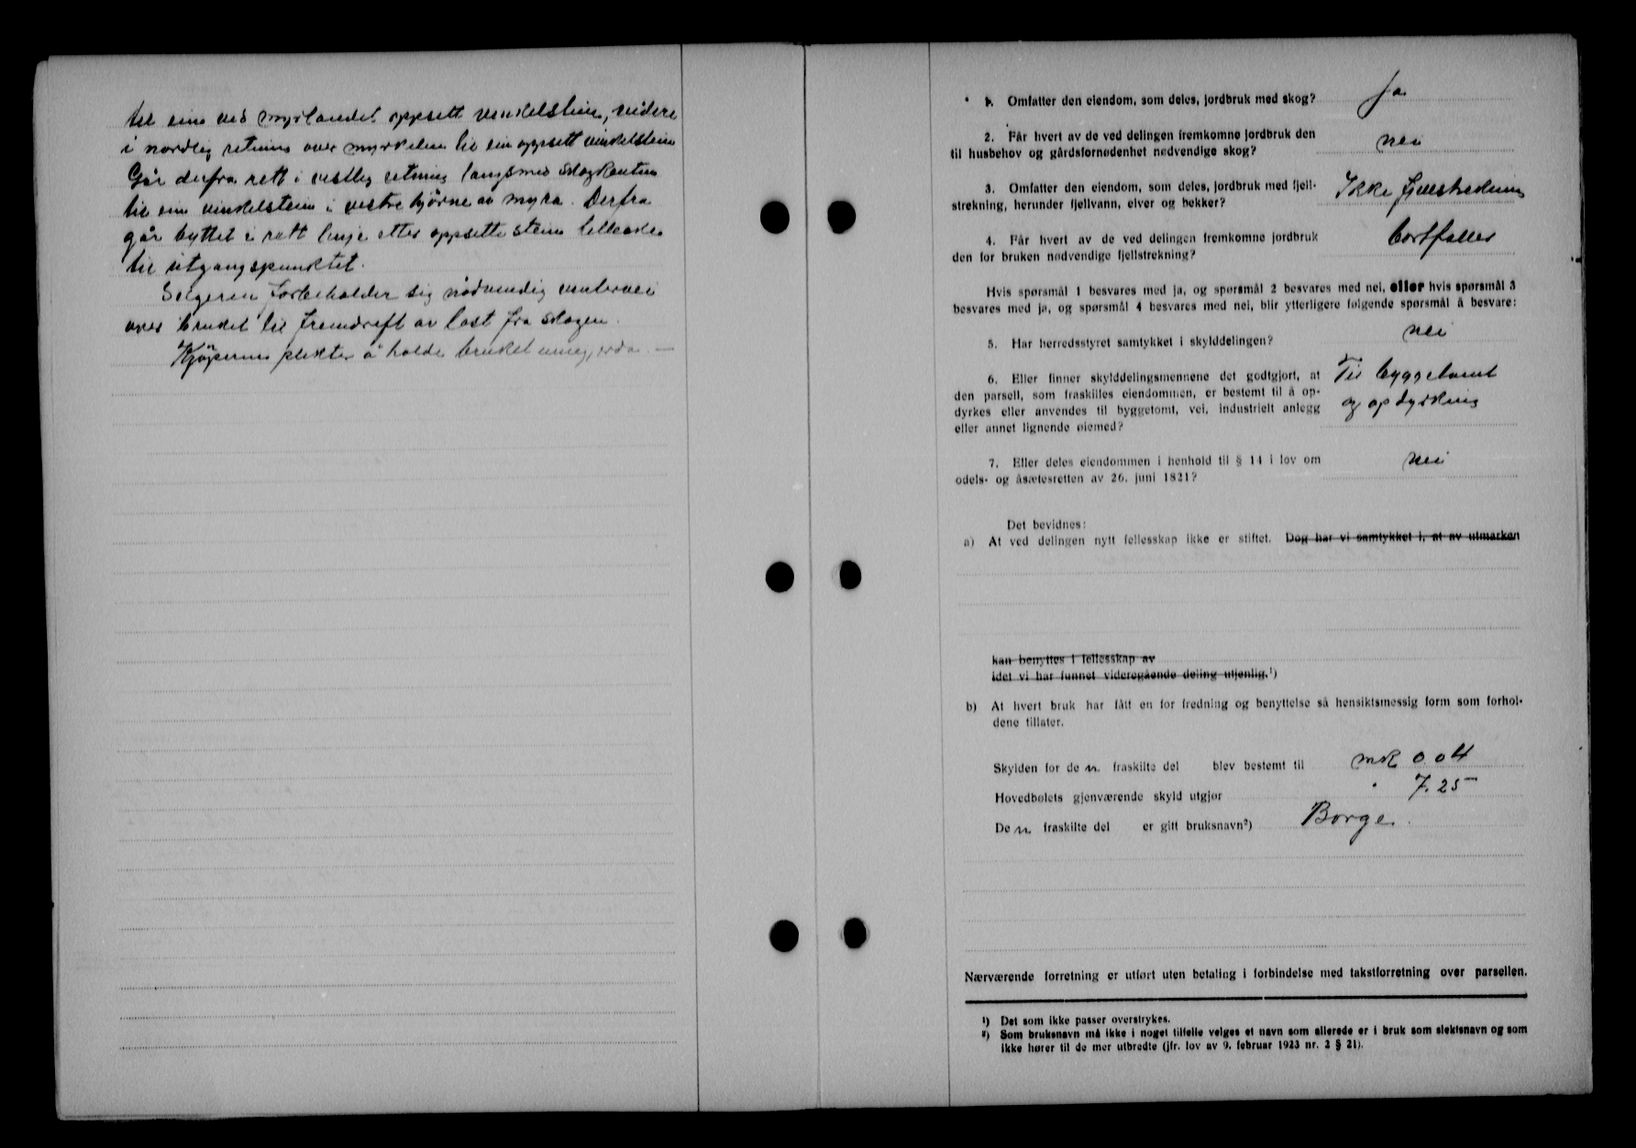 til ein ved myrlandet oppsett vinkelstein, videre
i nordleg retning over myrkelen til ein oppsett vinkelstein
Går derfra rett i vestleg retning langsmed skogkanten
til ein vinkelstein i vestre hjörne av myra. Derfra
går byttet i rett linje etter oppsette steine
til utgangspunktet.
Selgeren forbeholder sig nödvendig vintervei
over bruket til fremdrift av last fra skogen.
Kjöperen plikter å holde bruket
1. Omfatter den eiendom, som deles, jordbruk med skog? Ja
2. Får hvert av de ved delingen fremkomne jordbruk den
til husbehov og gårdsfornødenhet nødvendige skog? nei
3. Omfatter den eiendom, som deles, jordbruk med fjell-
strekning, herunder fjellvann, elver og bekker? Ikke fjellstrekning
4. Får hvert av de ved delingen fremkomne jordbruk
den for bruken nødvendige fjellstrekning? bortfaller
Hvis spørsmål 1 besvares med ja, og spørsmål 2 besvares med nei, eller hvis spørsmål 3
besvares med ja, og spørsmål 4 besvares med nei, blir ytterligere følgende spørsmål å besvare:
5. Har herredsstyret samtykket i skylddelingen? nei
6. Eller finner skylddelingsmennene det godtgjort, at
den parsell, som fraskilles eiendommen, er bestemt til å op-
dyrkes eller anvendes til byggetomt, vei, industrielt anlegg
eller annet lignende øiemed?
Til byggetomt
og opdyrking
7. Eller deles eiendommen i henhold til § 14 i lov om
odels- og åsætesretten av 26. juni 1821? nei
Det bevidnes:
a) At ved delingen nytt fellesskap ikke er stiftet. Dog har vi samtykket i, at av utmarken
kan benyttes i fellesskap av
idet vi har funnet videregående deling utjenlig.¹)
b) At hvert bruk har fått en for fredning og benyttelse så hensiktsmessig form som forhol-
dene tillater.
Skylden for de n. fraskilte del blev bestemt til mrk 0.04
Hovedbølets gjenværende skyld utgjør " 7.25
De n. fraskilte del er gitt bruksnavn²) Borge.
Nærværende forretning er utført uten betaling i forbindelse med takstforretning over parsellen.
¹) Det som ikke passer overstrykes.
²) Som bruksnavn må ikke i noget tilfelle velges et navn som allerede er i bruk som slektsnavn og som
ikke hører til de mer utbredte (jfr. lov av 9. februar 1923 nr. 2 § 21).